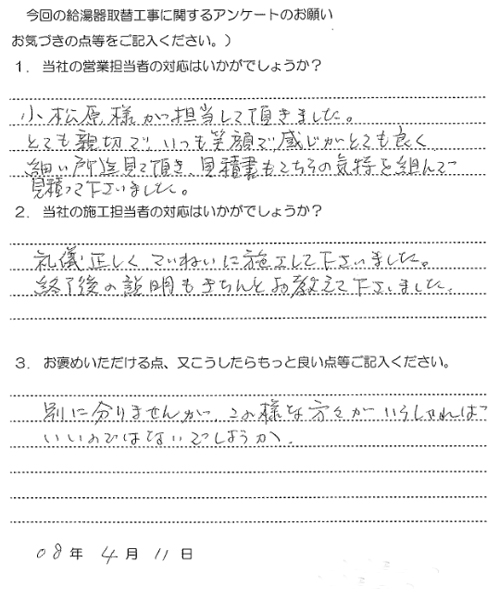 今回の給湯器取替工事に関するアンケートのお願い
お気づきの点等をご記入ください。）
１．当社の営業担当者の対応はいかがでしょうか？
小松原様が担当して頂きました。
とても親切で、いつも笑顔で感じがとても良く
細い所迄見て頂き、見積書もこちらの気持を組んで
見積って下さいました。
２．当社の施工担当者の対応はいかがでしょうか？
礼儀正しくていねいに施工して下さいました。
終了後の説明もきちんとお教えて下さいました。
３．お褒めいただける点、又こうしたらもっと良い点等ご記入ください。
別に分りませんが、この様な方々がいらしゃれば
いいのではないでしょうか。
08年 4月 11日